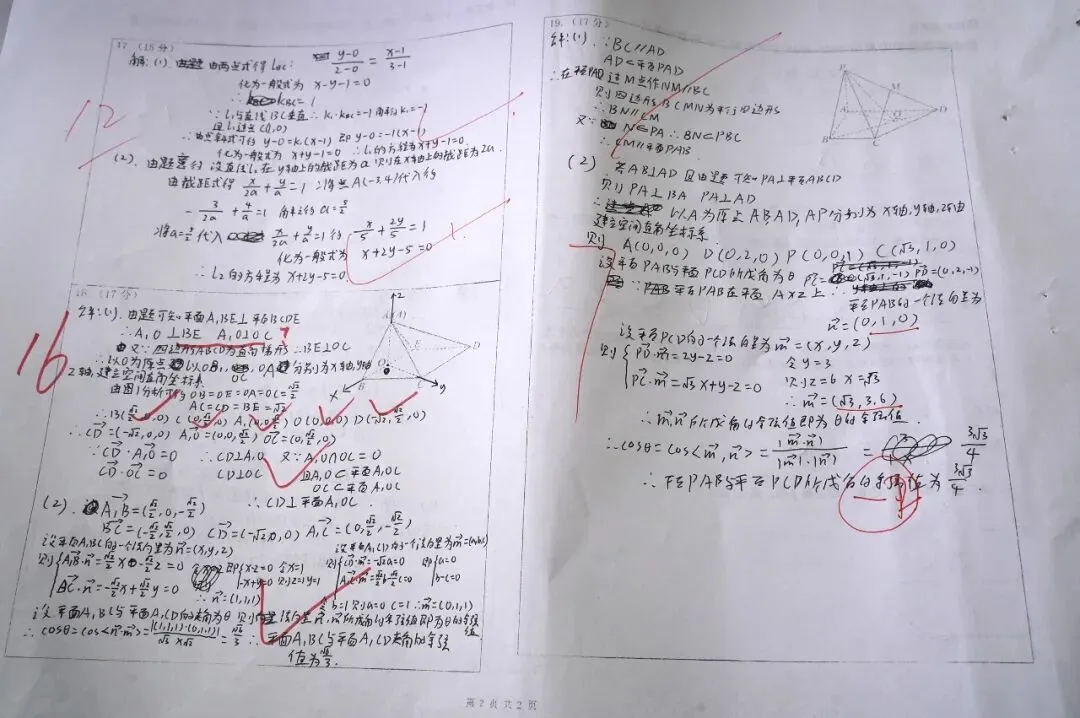 17. (15分)
解:(1). 由两点式得 lBC: y-0/2-0 = x-1/3-1
化为一般式为 x-y-1=0
∴ kBC=1
∵ l₁与直线BC垂直 ∴ k₁·kBC=-1 解得k₁=-1
且l₁过点C(1,0)
∴由点斜式可得 y-0=k₁(x-1) 即 y-0=-1(x-1)
化为一般式为 x+y-1=0 ∴l₁的方程为x+y-1=0
12
(2). 由题意得 设直线l₂在y轴上的截距为a 则在x轴上的截距为2a
由截距式得 x/2a + y/a =1 ∴将点A(-3,4)代入得
-3/2a + 4/a =1 解之得 a=5/2
∴将a=5/2代入 x/2a + y/a =1 得 x/5 + 2y/5 = 1
化为一般式为 x+2y-5=0
∴ l₂的方程为 x+2y-5=0
18. (17分)
16
解:(1). 由题可知平面A₁BE⊥平面BCDE
∴A₁O⊥BE A₁O⊥OC
?
又∵四边形ABCD为直角梯形 ∴BE⊥OC
z
A₁
E
D
O
B
C
x
y
由图1分析可得 OB=OE=OA=OC=√2/2
AC=CD=BE=√2
∴B(√2/2,0,0) C(0,√2/2,0) A₁(0,0,√2/2) O(0,0,0) D(-√2,√2/2,0)
∴CD=(-√2,0,0) A₁O=(0,0,√2/2) OC=(0,√2/2,0)
∵CD·A₁O=0 ∴CD⊥A₁O 又∵A₁O∩OC=O
CD·OC=0 CD⊥OC 且A₁O⊂平面A₁OC
OC⊂平面A₁OC
∴CD⊥平面A₁OC
(2). A₁B=(√2/2,0,-√2/2)
BC=(-√2/2,√2/2,0) CD=(-√2,0,0) A₁C=(0,√2/2,-√2/2)
设平面A₁BC的一个法向量为n=(x,y,z) 设平面A₁CD的一个法向量为m=(a,b,c)
则 A₁B·n=√2/2x-√2/2z=0 即 x-z=0 令x=1 则 CD·m=-√2a=0 即 a=0
BC·n=-√2/2x+√2/2y=0 -x+y=0 则z=1 y=1 A₁C·m=√2/2b-√2/2c=0 b-c=0
∴n=(1,1,1) 令b=1 则a=0 c=1 ∴m=(0,1,1)
设平面A₁BC与平面A₁CD的夹角为θ
∴cosθ=cos<n·m>=|(1,1,1)·(0,1,1)|/√3×√2=√6/3 ∴平面A₁BC与平面A₁CD夹角的余弦
值为√6/3.
19. (17分)
解:(1). ∵BC∥AD
AD⊂平面PAD
∴在平面PAD过M点作NM∥BC
则四边形BCMN为平行四边形
∴BN∥CM
又∵ N∈PA ∴BN⊂PBC
∴CM∥平面PAB
P
M
A
D
O
B
C
(2) 若AB⊥AD 且由题可知PA⊥平面ABCD
则PA⊥BA PA⊥AD
∴ 以A为原点 AB,AD,AP分别为x轴,y轴,z轴
建立空间直角坐标系
则 A(0,0,0) D(0,2,0) P(0,0,1) C(√3,1,0)
设平面PAB与平面PCD所成角为θ PC=(√3,1,-1) PD=(0,2,-1)
∵ 平面PAB在平面 AXZ上
∴平面PAB的一个法向量为
n=(0,1,0)
设平面PCD的一个法向量为m=(x,y,z)
则 PD·m=2y-z=0 令y=3
PC·m=√3x+y-z=0 则z=6 x=√3
∴m=(√3,3,6)
∴m,n所成角的余弦值即为θ的余弦值.
∴cosθ=cos<m,n>=|m·n|/|m|·|n| = 3√3/4
∴平面PAB与平面PCD所成角的余弦值为 3√3/4.
第 2 页 共 2 页